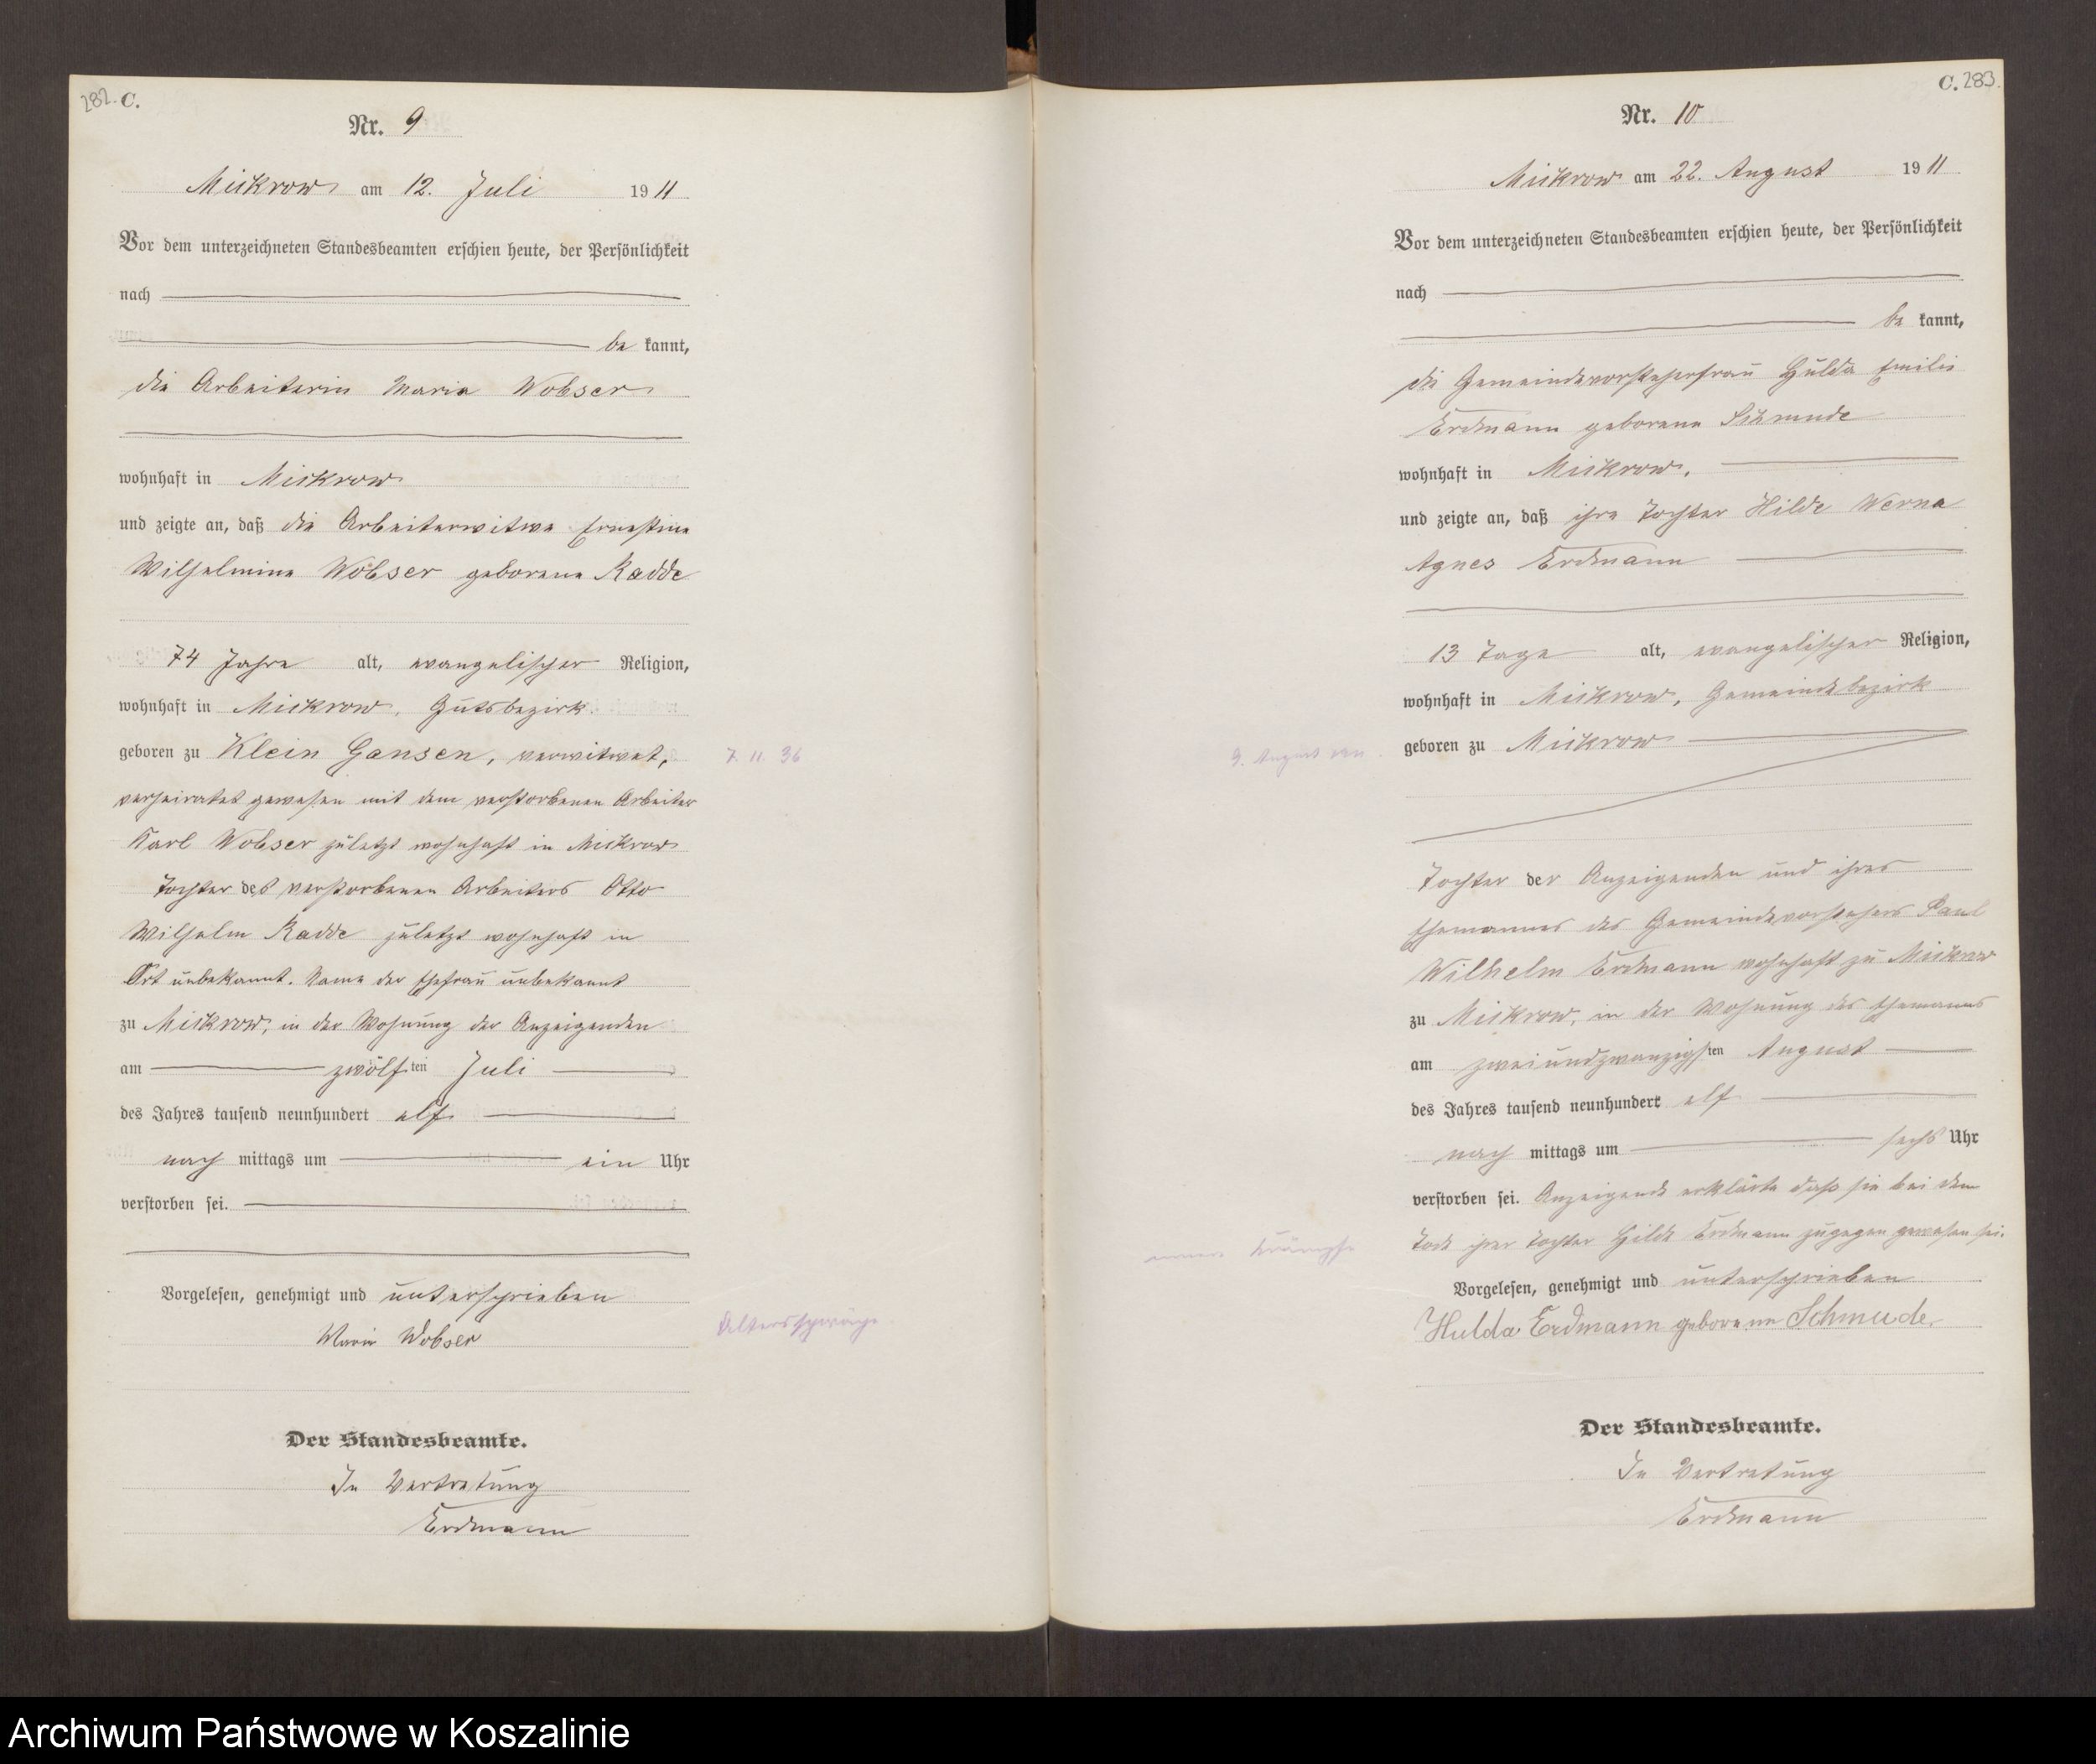 282. C.
Nr. 9
Mickrow am 12. Juli 1911
Vor dem unterzeichneten Standesbeamten erschien heute, der Persönlichkeit
nach
be kannt,
die Arbeiterin Maria Wobser
wohnhaft in Mickrow
und zeigte an, daß die Arbeiterwitwe Ernestine
Wilhelmine Wobser geborene Radde
74 Jahre alt, evangelischer Religion,
wohnhaft in Mickrow, Gutsbezirk.
geboren zu Klein Gansen, verwitwet,
7. 11. 36
verheiratet gewesen mit dem verstorbenen Arbeiter
Karl Wobser zuletzt wohnhaft in Mickrow
Tochter des verstorbenen Arbeiters Otto
Wilhelm Radde zuletzt wohnhaft in
Ort unbekannt. Name der Ehefrau unbekannt
zu Mickrow, in der Wohnung der Anzeigenden
am zwölf ten Juli
des Jahres tausend neunhundert elf
nach mittags um ein Uhr
verstorben sei.
Vorgelesen, genehmigt und unterschrieben
Maria Wobser
Altersschwäche
Der Standesbeamte.
In Vertretung
Erdmann
C. 283.
Nr. 10
Mickrow am 22. August 1911
Vor dem unterzeichneten Standesbeamten erschien heute, der Persönlichkeit
nach
be kannt,
die Gemeindevorsteherfrau Hulda Emilie
Erdmann geborene Schmude
wohnhaft in Mickrow.
und zeigte an, daß ihre Tochter Hilde Werna
Agnes Erdmann
13 Tage alt, evangelischer Religion,
wohnhaft in Mickrow, Gemeindebezirk
geboren zu Mickrow
9. August 1911.
Tochter der Anzeigenden und ihres
Ehemannes des Gemeindevorstehers Paul
Wilhelm Erdmann wohnhaft zu Mickrow
zu Mickrow, in der Wohnung des Ehemanns
am zweiundzwanzigs ten August
des Jahres tausend neunhundert elf
nach mittags um sechs Uhr
verstorben sei. Anzeigende erklärte daß sie bei dem
Tode ihrer Tochter Hilde Erdmann zugegen gewesen sei.
Krämpfe
Vorgelesen, genehmigt und unterschrieben
Hulda Erdmann geborene Schmude.
Der Standesbeamte.
In Vertretung
Erdmann
Archiwum Państwowe w Koszalinie